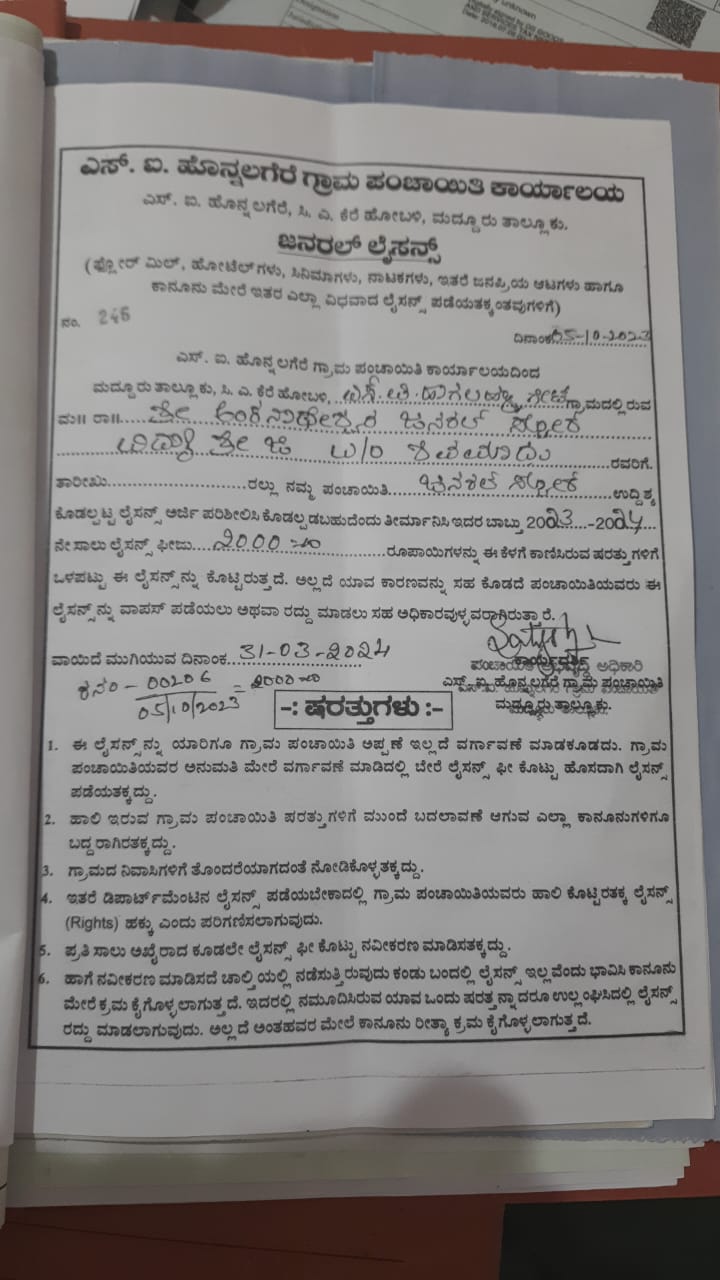 ಎಸ್. ಐ. ಹೊನ್ನಲಗೆರೆ ಗ್ರಾಮ ಪಂಚಾಯಿತಿ ಕಾರ್ಯಾಲಯ
ಎಸ್. ಐ. ಹೊನ್ನಲಗೆರೆ, ಸಿ. ಎ. ಕೆರೆ ಹೋಬಳಿ, ಮದ್ದೂರು ತಾಲ್ಲೂಕು.
ಜನರಲ್ ಲೈಸನ್ಸ್
(ಫ್ಲೋರ್ ಮಿಲ್, ಹೋಟೆಲ್‌ಗಳು, ಸಿನಿಮಾಗಳು, ನಾಟಕಗಳು, ಇತರೆ ಜನಪ್ರಿಯ ಆಟಗಳು ಹಾಗೂ
ಕಾನೂನು ಮೇರೆ ಇತರ ಎಲ್ಲಾ ವಿಧವಾದ ಲೈಸನ್ಸ್ ಪಡೆಯತಕ್ಕಂತವುಗಳಿಗೆ)
ನಂ. 246
ದಿನಾಂಕ 05-10-2023
ಎಸ್. ಐ. ಹೊನ್ನಲಗೆರೆ ಗ್ರಾಮ ಪಂಚಾಯಿತಿ ಕಾರ್ಯಾಲಯದಿಂದ
ಮದ್ದೂರು ತಾಲ್ಲೂಕು, ಸಿ. ಎ. ಕೆರೆ ಹೋಬಳಿ, ಗ್ರಾಮದಲ್ಲಿರುವ
ಮ॥ ರಾ॥ ಶ್ರೀ ಜನರಲ್ ಸ್ಟೋರ್
W/O ರವರಿಗೆ.
ತಾರೀಖು ರಲ್ಲು ನಮ್ಮ ಪಂಚಾಯಿತಿ ಜನರಲ್ ಸ್ಟೋರ್ ಉದ್ದಿಶ್ಯ
ಕೊಡಲ್ಪಟ್ಟ ಲೈಸನ್ಸ್ ಅರ್ಜಿ ಪರಿಶೀಲಿಸಿ ಕೊಡಲ್ಪಡಬಹುದೆಂದು ತೀರ್ಮಾನಿಸಿ ಇದರ ಬಾಬ್ತು 2023 -2024
ನೇ ಸಾಲು ಲೈಸನ್ಸ್ ಫೀಜು 2000=00 ರೂಪಾಯಿಗಳನ್ನು ಈ ಕೆಳಗೆ ಕಾಣಿಸಿರುವ ಷರತ್ತುಗಳಿಗೆ
ಒಳಪಟ್ಟು ಈ ಲೈಸನ್ಸ್‌ನ್ನು ಕೊಟ್ಟಿರುತ್ತದೆ. ಅಲ್ಲದೆ ಯಾವ ಕಾರಣವನ್ನು ಸಹ ಕೊಡದೆ ಪಂಚಾಯಿತಿಯವರು ಈ
ಲೈಸನ್ಸ್‌ನ್ನು ವಾಪಸ್ ಪಡೆಯಲು ಅಥವಾ ರದ್ದು ಮಾಡಲು ಸಹ ಅಧಿಕಾರವುಳ್ಳವರಾಗಿರುತ್ತಾರೆ.
ವಾಯಿದೆ ಮುಗಿಯುವ ದಿನಾಂಕ 31-03-2024
ಪಂಚಾಯತಿ ಅಭಿವೃದ್ಧಿ ಅಧಿಕಾರಿ
ಕಾರ್ಯದರ್ಶಿ
00206 = 2000=00
05/10/2023
ಎಸ್. ಐ. ಹೊನ್ನಲಗೆರೆ ಗ್ರಾಮ ಪಂಚಾಯಿತಿ
ಮದ್ದೂರು ತಾಲ್ಲೂಕು.
-: ಷರತ್ತುಗಳು :-
1. ಈ ಲೈಸನ್ಸ್‌ನ್ನು ಯಾರಿಗೂ ಗ್ರಾಮ ಪಂಚಾಯಿತಿ ಅಪ್ಪಣೆ ಇಲ್ಲದೆ ವರ್ಗಾವಣೆ ಮಾಡಕೂಡದು. ಗ್ರಾಮ
ಪಂಚಾಯಿತಿಯವರ ಅನುಮತಿ ಮೇರೆ ವರ್ಗಾವಣೆ ಮಾಡಿದಲ್ಲಿ ಬೇರೆ ಲೈಸನ್ಸ್ ಫೀ ಕೊಟ್ಟು ಹೊಸದಾಗಿ ಲೈಸನ್ಸ್
ಪಡೆಯತಕ್ಕದ್ದು.
2. ಹಾಲಿ ಇರುವ ಗ್ರಾಮ ಪಂಚಾಯಿತಿ ಷರತ್ತುಗಳಿಗೆ ಮುಂದೆ ಬದಲಾವಣೆ ಆಗುವ ಎಲ್ಲಾ ಕಾನೂನುಗಳಿಗೂ
ಬದ್ದರಾಗಿರತಕ್ಕದ್ದು.
3. ಗ್ರಾಮದ ನಿವಾಸಿಗಳಿಗೆ ತೊಂದರೆಯಾಗದಂತೆ ನೋಡಿಕೊಳ್ಳತಕ್ಕದ್ದು.
4. ಇತರೆ ಡಿಪಾರ್ಟ್‌ಮೆಂಟಿನ ಲೈಸನ್ಸ್ ಪಡೆಯಬೇಕಾದಲ್ಲಿ ಗ್ರಾಮ ಪಂಚಾಯಿತಿಯವರು ಹಾಲಿ ಕೊಟ್ಟಿರತಕ್ಕ ಲೈಸನ್ಸ್
(Rights) ಹಕ್ಕು ಎಂದು ಪರಿಗಣಿಸಲಾಗುವುದು.
5. ಪ್ರತಿ ಸಾಲು ಅಖೈರಾದ ಕೂಡಲೇ ಲೈಸನ್ಸ್ ಫೀ ಕೊಟ್ಟು ನವೀಕರಣ ಮಾಡಿಸತಕ್ಕದ್ದು.
6. ಹಾಗೆ ನವೀಕರಣ ಮಾಡಿಸದೆ ಚಾಲ್ತಿಯಲ್ಲಿ ನಡೆಸುತ್ತಿರುವುದು ಕಂಡು ಬಂದಲ್ಲಿ ಲೈಸನ್ಸ್ ಇಲ್ಲವೆಂದು ಭಾವಿಸಿ ಕಾನೂನು
ಮೇರೆ ಕ್ರಮ ಕೈಗೊಳ್ಳಲಾಗುತ್ತದೆ. ಇದರಲ್ಲಿ ನಮೂದಿಸಿರುವ ಯಾವ ಒಂದು ಷರತ್ತನ್ನಾದರೂ ಉಲ್ಲಂಘಿಸಿದಲ್ಲಿ ಲೈಸನ್ಸ್
ರದ್ದು ಮಾಡಲಾಗುವುದು. ಅಲ್ಲದೆ ಅಂತಹವರ ಮೇಲೆ ಕಾನೂನು ರೀತ್ಯಾ ಕ್ರಮ ಕೈಗೊಳ್ಳಲಾಗುತ್ತದೆ.